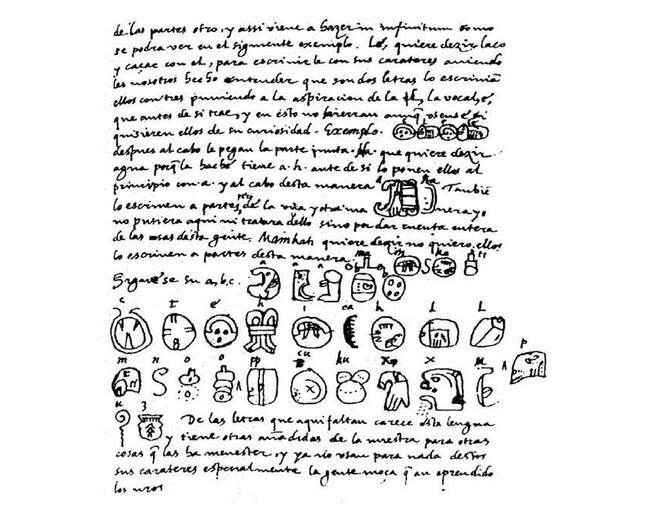 de las partes otro, y assi viene a hazer in infinitum como
se podra ver en el siguiente exemplo. Lé, quiere dezir laço
y caçar con el, para escrivirle con sus carateres aviendo
les nosotros hecho entender que son dos letras lo escrivian
ellos con tres puniendo a la aspiracion de la l, la vocal, é,
que antes de si trae, y en esto no hierran aunq̃ usense si
quisieren ellos de su curiosidad. Exemplo.
despues al cabo le pegan la parte junta. Ha. que quiere dezir
agua porq̃ la haché tiene a. h. ante de si lo ponen ellos al
principio con a. y al cabo desta manera a ha Tambiē
lo escriven a partes, de la una y otra ma nera yo
no pusiera aqui ni tratara dello sino por dar cuenta entera
de las cosas desta gente. Mainkati quiere dezir no quiero, ellos
lo escriven a partes desta manera. ma i n ka ti
Siguese su a, b, c. a a a b b
c t é h i ca k l l
m n o o pp cu ku x x u p
u z De las letras que aqui faltan carece esta lengua
y tiene otras añadidas de la nuestra para otras
cosas q̃ las ha menester, y ya no usan para nada destos
sus carateres especialmente la gente moça q̃ an aprendido
los nros